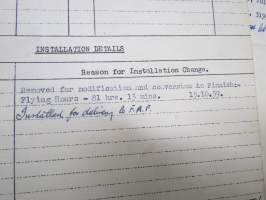 INSTALLATION DETAILS
Reason for Installation Change.
Removed for modification and conversion to Finnish:-
Flying Hours - 81 hrs. 13 mins. 15.10.59.
Installed for delivery to F.A.F.